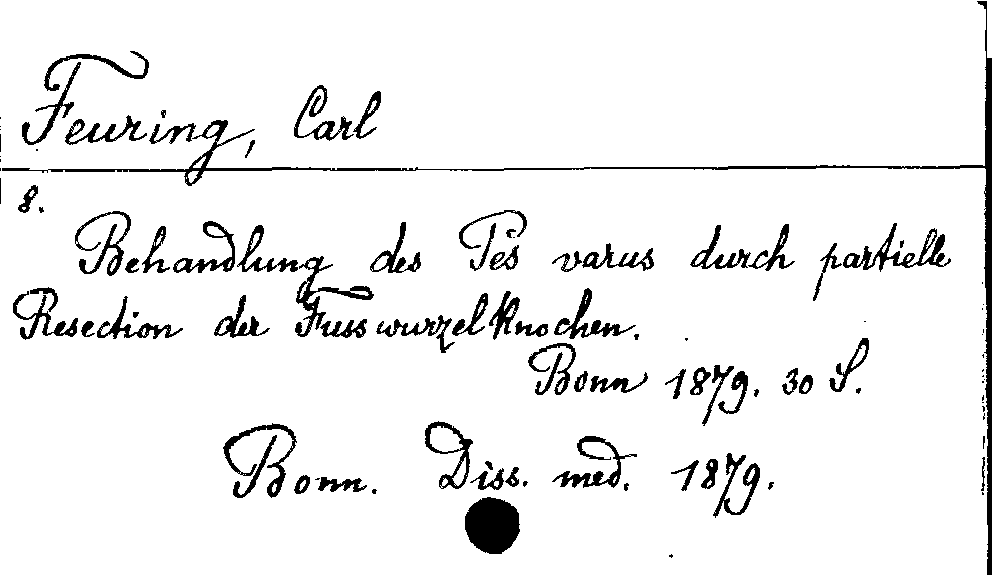 Feuring, Carl
8.
Behandlung des Pes varus durch partielle
Resection der Fusswurzelknochen.
Bonn 1879. 30 S.
Bonn. Diss. med. 1879.